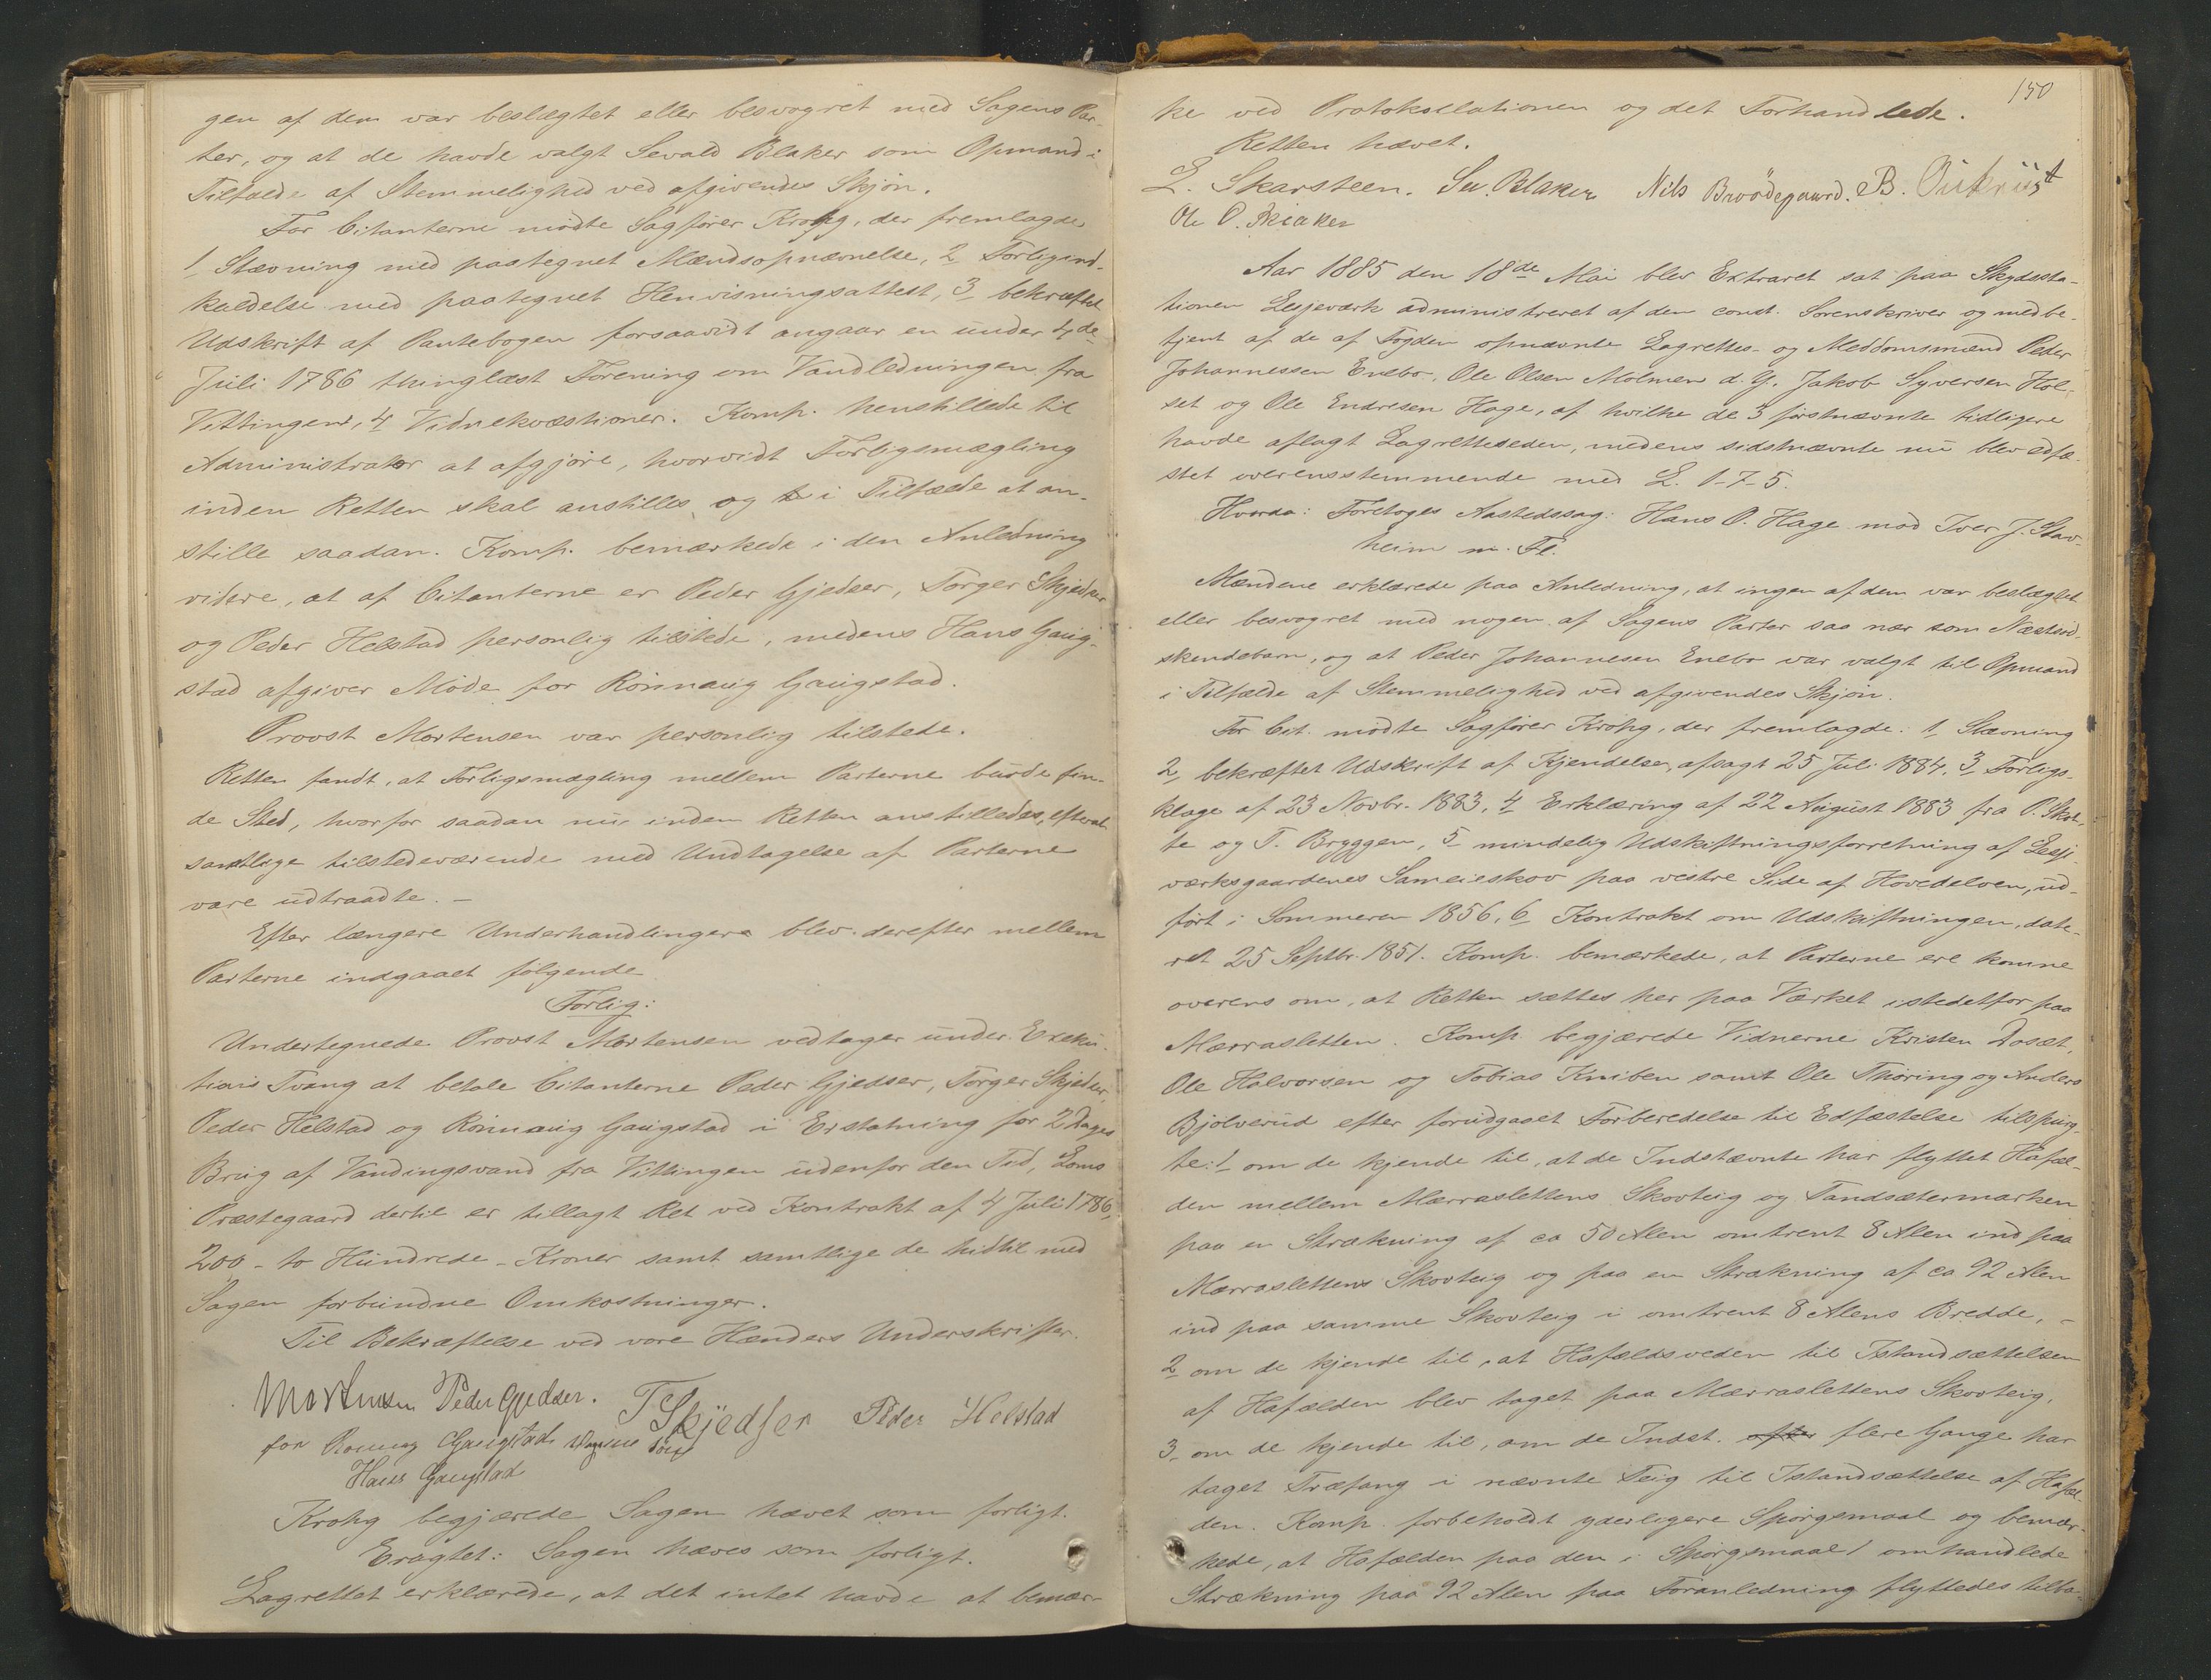 gen af dem var beslægtet eller besvogret med Sagens Par-
ter, og at de havde valgt Sevald Blaker som Opmand i
Tilfælde af Stemmelighed ved afgivendes Skjøn.
For Citanterne mødte Sagfører Krohg, der fremlagde
1 Stævning med paategnet Mændsopnævnelse, 2 Forligsind-
kaldelse med paategnet Henvisningsattest, 3 bekræftet
Udskrift af Pantebogen forsaavidt angaar en under 4de
Juli 1786 thinglæst Forening om Vandledningen fra
Vittingen, 4 Vidnekvæstioner. Komp. henstillede til
Administrator at afgjøre, hvorvidt Forligsmægling
inden Retten skal anstilles og i Tilfælde at an-
stille saadan. Komp. bemærkede i den Anledning
videre, at af Citanterne er Peder Gjedser, Torger Skjedser
og Peder Helstad personlig tilstede, medens Hans Gaug-
stad afgiver Møde for Rønnaug Gaugstad.
Provst Mortensen var personlig tilstede.
Retten fandt, at Forligsmægling mellem Parterne burde fin-
de Sted, hvorfor saadan nu inden Retten anstilledes, efterat
samtlige tilstedeværende med Undtagelse af Parterne
vare udtraadte. –
Efter længere Underhandlinger blev derefter mellem
Parterne indgaaet følgende
Forlig:
Undertegnede Provst Mortensen vedtager under Exeku-
tions Tvang at betale Citanterne Peder Gjedser, Torger Skjedser,
Peder Helstad og Rønnaug Gaugstad i Erstatning for 2 Dages
Brug af Vandingsvand fra Vittingen udenfor den Tid, Loms
Præstegaard dertil er tillagt Ret ved Kontrakt af 4 Juli 1786,
200 – to Hundrede – Kroner samt samtlige de hidtil med
Sagen forbundne Omkostninger.
Til Bekræftelse ved vore Hænders Underskrifter.
Mortensen Peder Gjedser. T Skjedser Peder Helstad
for Rønnug Gaugstad
Hans Gaugstad
Krohg begjærede Sagen hævet som forligt.
Eragtet: Sagen hæves som forligt.
Lagrettet erklærede, at det intet havde at bemær-
150
ke ved Protokollationen og det Forhandlede.
Retten hævet.
L. Skarsteen. Sev. Blaker Nils Brøødegaard. B.
Ole O. Blaker
Aar 1885 den 18de Mai blev Extraret sat paa Skydssta-
tionen Lesjeværk administreret af den const. Sorenskriver og medbe-
tjent af de af Fogden opnævnte Lagrettes- og Meddomsmænd Peder
Johannessen Enebo, Ole Olsen Mølmen d. Y. Jakob Syversen Hol-
set og Ole Endresen Hage, af hvilke de 3 førstnævnte tidligere
havde aflagt Lagretteseden, medens sidstnævnte nu blev edfæ-
stet overensstemmende med L. 1-7-5.
Hvorda: Foretoges Aastedssag: Hans O. Hage mod Iver J. Stav-
heim m. Fl.
Mændene erklærede paa Anledning, at ingen af dem var beslægtet
eller besvogret med nogen af Sagens Parter saa nær som Næstsød-
skendebarn, og at Peder Johannesen Enebo var valgt til Opmand
i Tilfælde af Stemmelighed ved afgivendes Skjøn.
For Cit. mødte Sagfører Krohg, der fremlagde: 1 Stævning
2 bekræftet Udskrift af Kjendelse, afsagt 25 Juli 1884, 3 Forligs-
klage af 23 Novbr. 1883, 4 Erklæring af 22 August 1883 fra O. Skot-
te og T. Bryggen, 5 mindelig Udskiftningsforretning af Lesje-
værksgaardenes Sameieskov paa vestre Side af Hovedelven, ud-
ført i Sommeren 1856, 6 Kontrakt om Udskiftningen, date-
ret 25 Septbr. 1851. Komp. bemærkede, at Parterne ere komne
overens om, at Retten sættes her paa Værket istedetfor paa
Mærrasletten. Komp. begjærede Vidnerne Kristen Dosæt,
Ole Halvorsen og Tobias Kniben samt Ole Thøring og Anders
Bjølverud efter forudgaaet Forberedelse til Edfæstelse tilspurg-
te: 1 om de kjende til, at de Indstævnte har flyttet Hafæl-
den mellem Mærraslettens Skovteig og Tandsætermarken
paa en Strækning af ca 50 Alen omtrent 8 Alen ind paa
Mærraslettens Skovteig og paa en Strækning af ca 92 Alen
ind paa samme Skovteig i omtrent 8 Alens Bredde, –
2 om de kjende til, at Hafældsveden til Istandsættelsen
af Hafælden blev taget paa Mærraslettens Skovteig,
3 om de kjende til, om de Indst. efter flere Gange har
taget Træfang i nævnte Teig til Istandsættelse af Hafæl-
den. Komp. forbeholdt yderligere Spørgsmaal og bemær-
kede, at Hafælden paa den i Spørgsmaal 1 omhandlede
Strækning paa 92 Alen paa Foranledning flyttedes tilba-